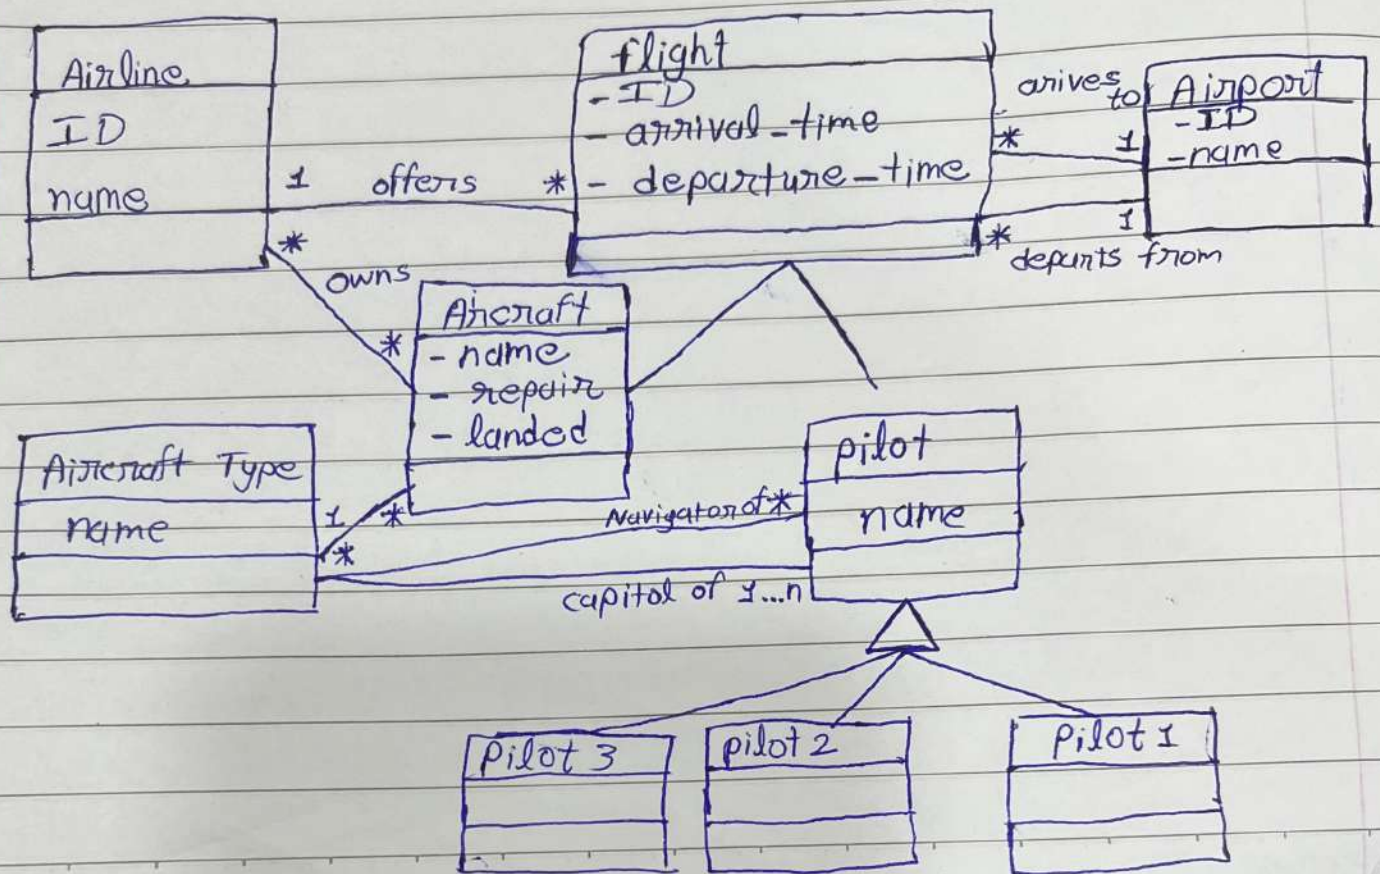 Airline
ID
name
1 offers *
flight
- ID
- arrival_time
- departure_time
arives to
* 1
Airport
- ID
- name
* 1
departs from
*
owns
*
Aircraft
- name
- repair
- landed
Aircraft Type
name
1 *
*
Navigator of *
capital of 1...n
pilot
name
Pilot 3
pilot 2
Pilot 1